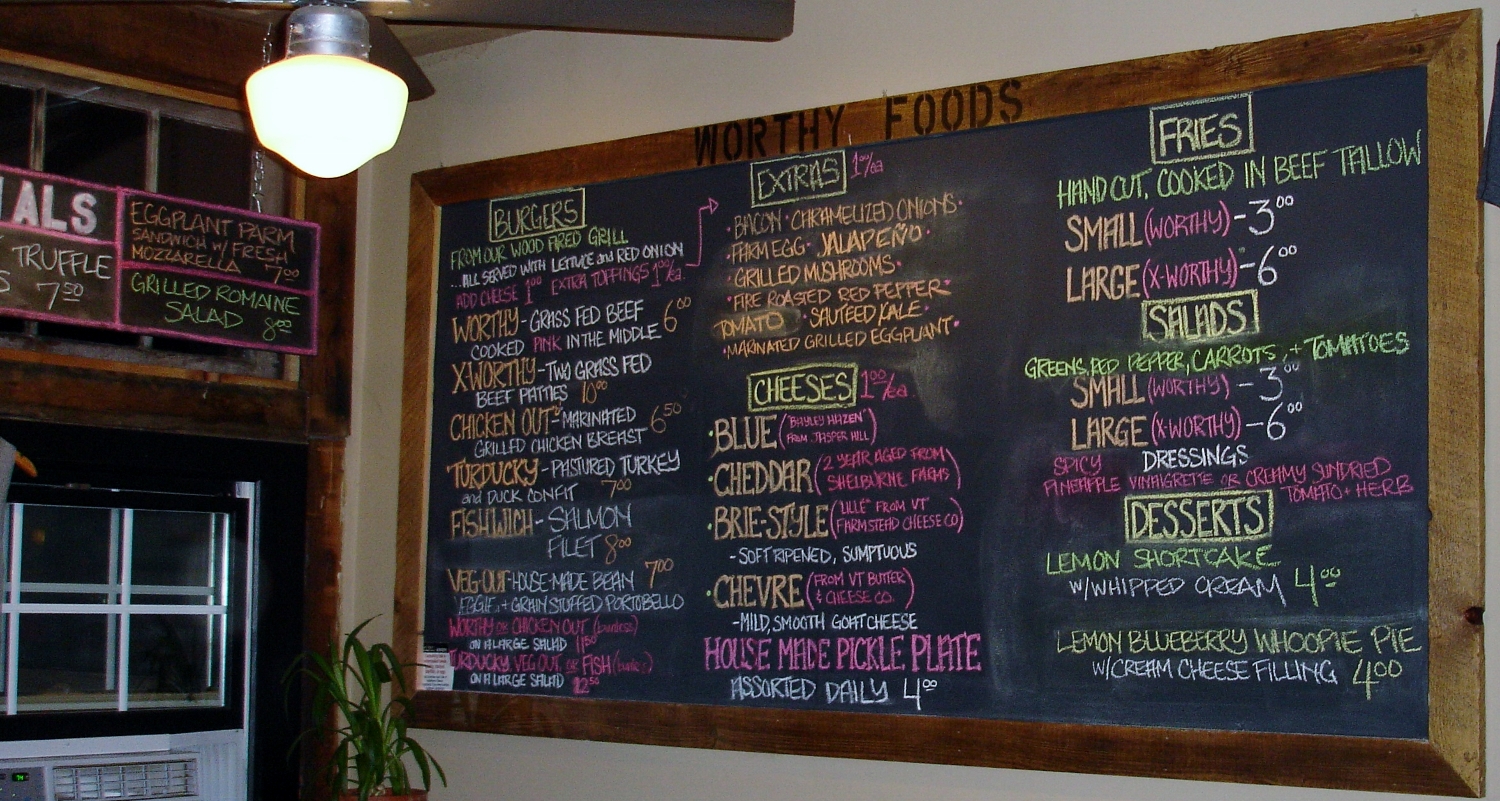 ALS
TRUFFLE
7.50
EGGPLANT PARM
SANDWICH W/ FRESH
MOZZARELLA 7.00
GRILLED ROMAINE
SALAD 8.00
WORTHY FOODS
BURGERS
FROM OUR WOOD FIRED GRILL
...ALL SERVED WITH LETTUCE and RED ONION
ADD CHEESE 1.00 EXTRA TOPPINGS 1.00/ea.
WORTHY - GRASS FED BEEF 6.00
COOKED PINK IN THE MIDDLE
X-WORTHY - TWO GRASS FED
BEEF PATTIES 10.00
CHICKEN OUT - MARINATED 6.50
GRILLED CHICKEN BREAST
TURDUCKY - PASTURED TURKEY
and DUCK CONFIT 7.00
FISHWICH - SALMON
FILET 8.00
VEG OUT - HOUSE-MADE BEAN 7.00
VEGGIE, + GRAIN STUFFED PORTOBELLO
WORTHY OR CHICKEN OUT (bunless)
ON A LARGE SALAD 11.50
TURDUCKY, VEG OUT, OR FISH (bunless)
ON A LARGE SALAD 12.50
EXTRAS 1.00/ea
· BACON · CARAMELIZED ONIONS ·
· FARM EGG · JALAPEÑO ·
· GRILLED MUSHROOMS ·
· FIRE ROASTED RED PEPPER
TOMATO · SAUTEED KALE ·
· MARINATED GRILLED EGGPLANT ·
CHEESES 1.00/ea.
· BLUE ("BAYLEY HAZEN" FROM JASPER HILL)
· CHEDDAR (2 YEAR AGED FROM SHELBURNE FARMS)
· BRIE-STYLE ("LILLÉ" FROM VT FARMSTEAD CHEESE CO)
- SOFT RIPENED, SUMPTUOUS
· CHEVRE (FROM VT BUTTER & CHEESE CO.)
- MILD, SMOOTH GOAT CHEESE
HOUSE MADE PICKLE PLATE
ASSORTED DAILY 4.00
FRIES
HAND CUT, COOKED IN BEEF TALLOW
SMALL (WORTHY) - 3.00
LARGE (X-WORTHY) - 6.00
SALADS
GREENS, RED PEPPER, CARROTS, + TOMATOES
SMALL (WORTHY) - 3.00
LARGE (X-WORTHY) - 6.00
DRESSINGS
SPICY PINEAPPLE VINAIGRETTE OR CREAMY SUNDRIED TOMATO + HERB
DESSERTS
LEMON SHORTCAKE
W/WHIPPED CREAM 4.00
LEMON BLUEBERRY WHOOPIE PIE
W/CREAM CHEESE FILLING 4.00